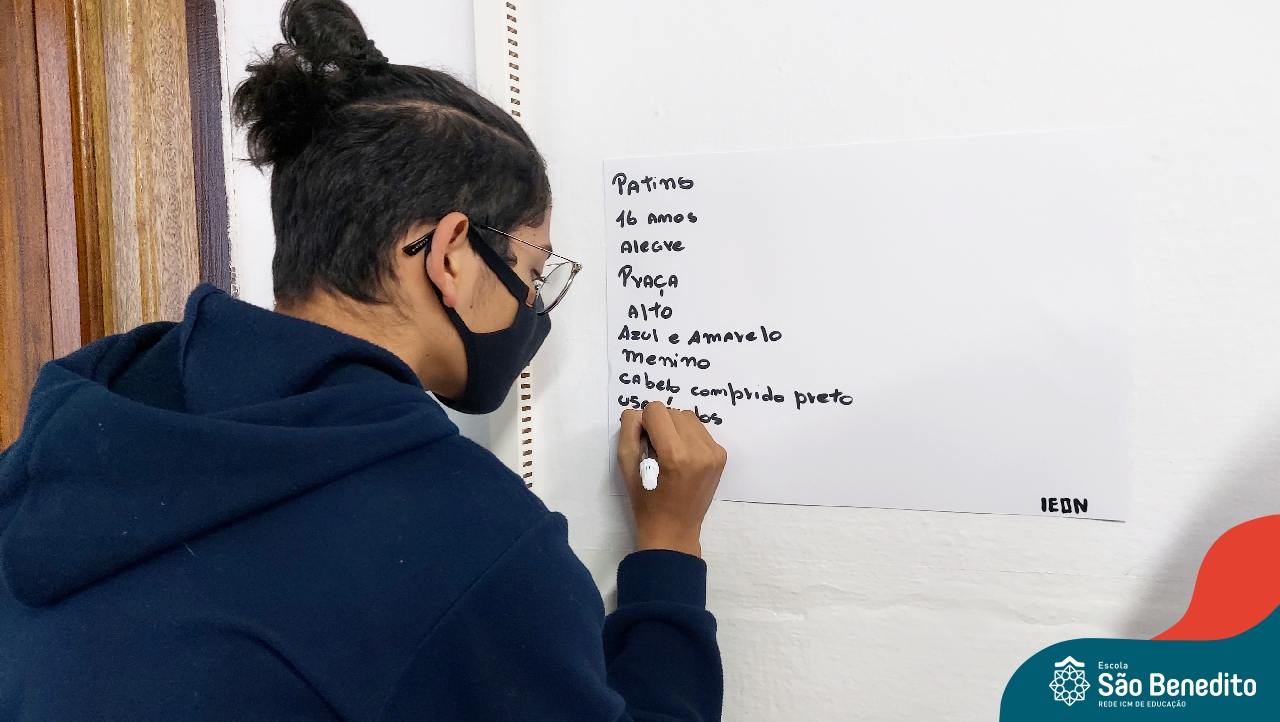 PATINS
16 ANOS
Alegre
Praça
Alto
Azul e Amarelo
menino
cabelo comprido preto
IEDN
Escola
São Benedito
REDE ICM DE EDUCAÇÃO